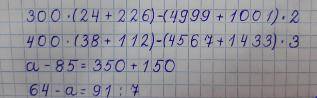 300·(24+226)-(4999+1001)·2
400·(38+112)-(4567+1433)·3
a-85=350+150
64-a=91:7